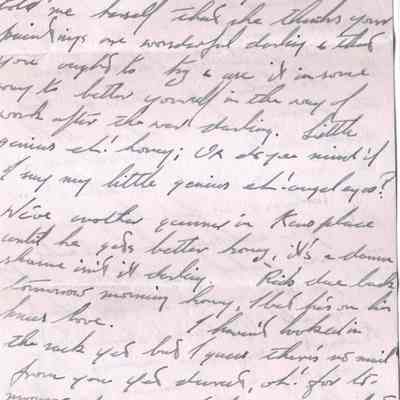 told me herself that she thinks your
paintings are wonderful darling & that
you ought to try & use it in some
way to better yourself in the way of
work after the war darling. Little
genius eh! honey; Or do you mind if
I say my little genius eh! angel eyes?
We've another gunner in Kens place
until he gets better honey, it's a damn
shame isn't it darling Rick due back
tomorrow morning honey, I bet he's on his
knees love. I haven't looked in
the rack yet but I guess there's no mail
from you yet sweet, oh! for to-